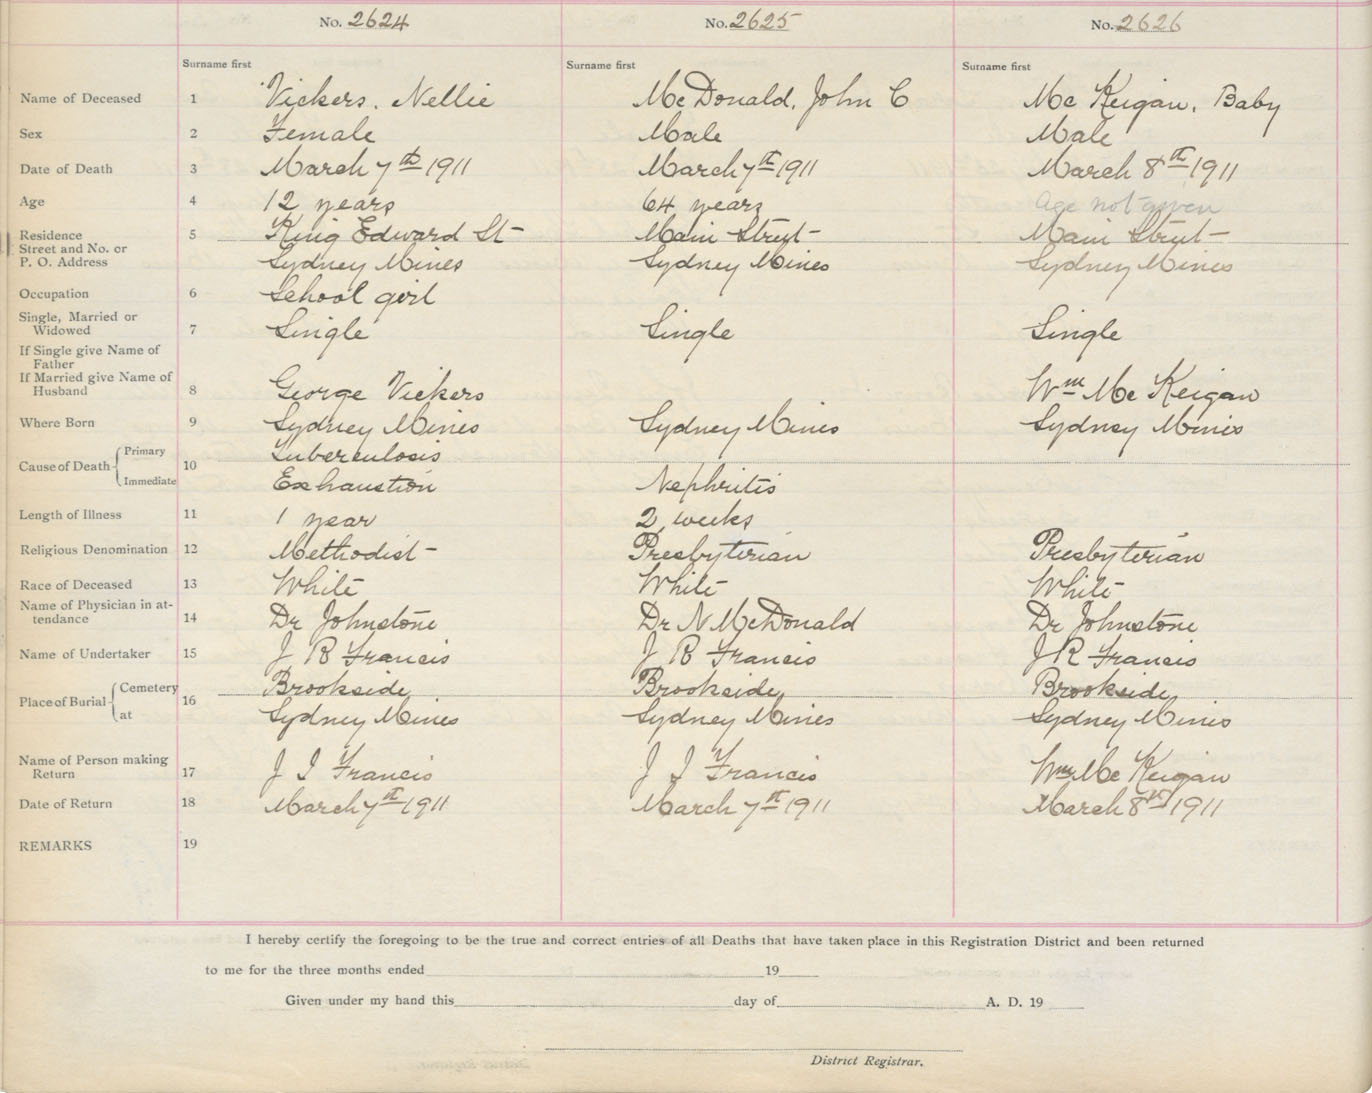 No. 2624 No. 2625 No. 2626
Surname first Surname first Surname first
Name of Deceased 1 Vickers, Nellie McDonald, John C McKeigan, Baby
Sex 2 Female Male Male
Date of Death 3 March 7th 1911 March 7th 1911 March 8th 1911
Age 4 12 years 64 years Age not given
Residence 5 King Edward St Main Street Main Street
Street and No. or
P. O. Address Sydney Mines Sydney Mines Sydney Mines
Occupation 6 School girl
Single, Married or
Widowed 7 Single Single Single
If Single give Name of
Father
If Married give Name of
Husband 8 George Vickers Wm McKeigan
Where Born 9 Sydney Mines Sydney Mines Sydney Mines
Cause of Death Primary 10 Tuberculosis
Immediate Exhaustion Nephritis
Length of Illness 11 1 year 2 weeks
Religious Denomination 12 Methodist Presbyterian Presbyterian
Race of Deceased 13 White White White
Name of Physician in at-
tendance 14 Dr Johnstone Dr N McDonald Dr Johnstone
Name of Undertaker 15 J R Francis J R Francis J R Francis
Place of Burial Cemetery 16 Brookside Brookside Brookside
at Sydney Mines Sydney Mines Sydney Mines
Name of Person making
Return 17 J J Francis J J Francis Wm McKeigan
Date of Return 18 March 7th 1911 March 7th 1911 March 8th 1911
REMARKS 19
I hereby certify the foregoing to be the true and correct entries of all Deaths that have taken place in this Registration District and been returned
to me for the three months ended 19
Given under my hand this day of A. D. 19
District Registrar.